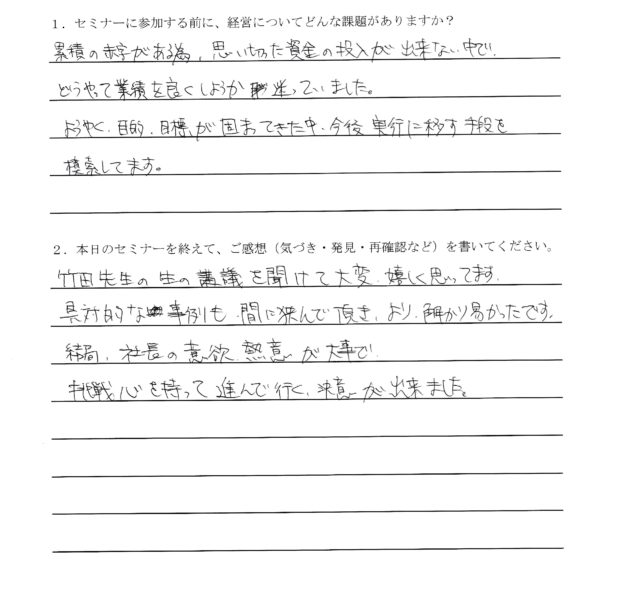 1．セミナーに参加する前に、経営についてどんな課題がありますか？
累積の赤字がある為、思い切った資金の投入が出来ない中で、
どうやって業績を良くしようか迷っていました。
ようやく、目的・目標が固まってきた中、今後実行に移す手段を
模索してます。
2．本日のセミナーを終えて、ご感想（気づき・発見・再確認など）を書いてください。
竹田先生の生の講議を聞けて大変嬉しく思ってます。
具対的な事例も間に挟んで頂き、より解かり易かったです。
結局、社長の意欲熱意が大事で
挑戦心を持って進んで行く、決意が出来ました。